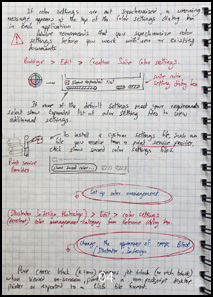 If color settings are not synchronised, a warning
message appears at the top of the color settings dialog box
in each application.
Adobe recommends that you synchronise color
settings before you work with new or existing
documents.
Bridge > Edit > Creative Suite color settings.
Show Expanded List
suite color
setting dialog box
If none of the default settings meet your requirements
select show Expanded list of color setting files to view
additional settings.
To install a custom settings file, such as
file you receive from a print service provider,
click show saved color settings files.
Print service
Provider
Set up color management
(Illustrator, InDesign, Photoshop) > Edit > color settings
color management category from
Change the appearance of
Illustrator, InDesign
Pure black (k=100) appears jet black (or rich black)
when viewed on-screen, printed to a non-postscript desktop
printer or exported to a file format.